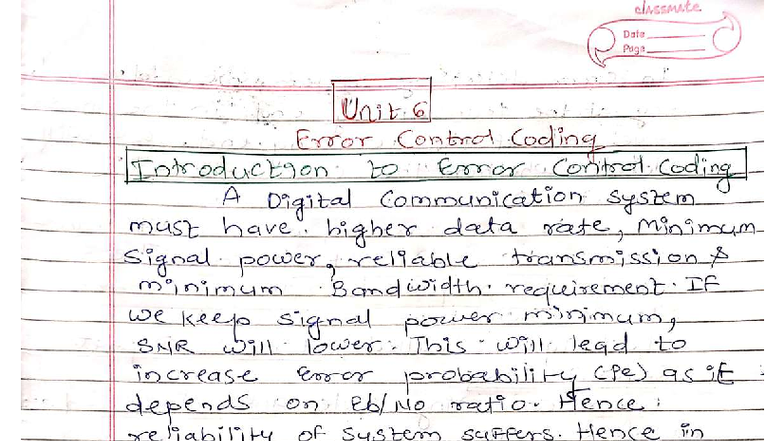 classmate
Date
Page
Unit. 6
Error Control Coding
Introduction to Error Control Coding
A Digital Communication system
must have higher data rate, Minimum
Signal power, reliable transmission &
minimum Bandwidth requirement. If
we keep signal power minimum,
SNR will lower. This will lead to
increase error probability (Pe) as it
depends on Eb/No ratio. Hence
reliability of system suffers. Hence in